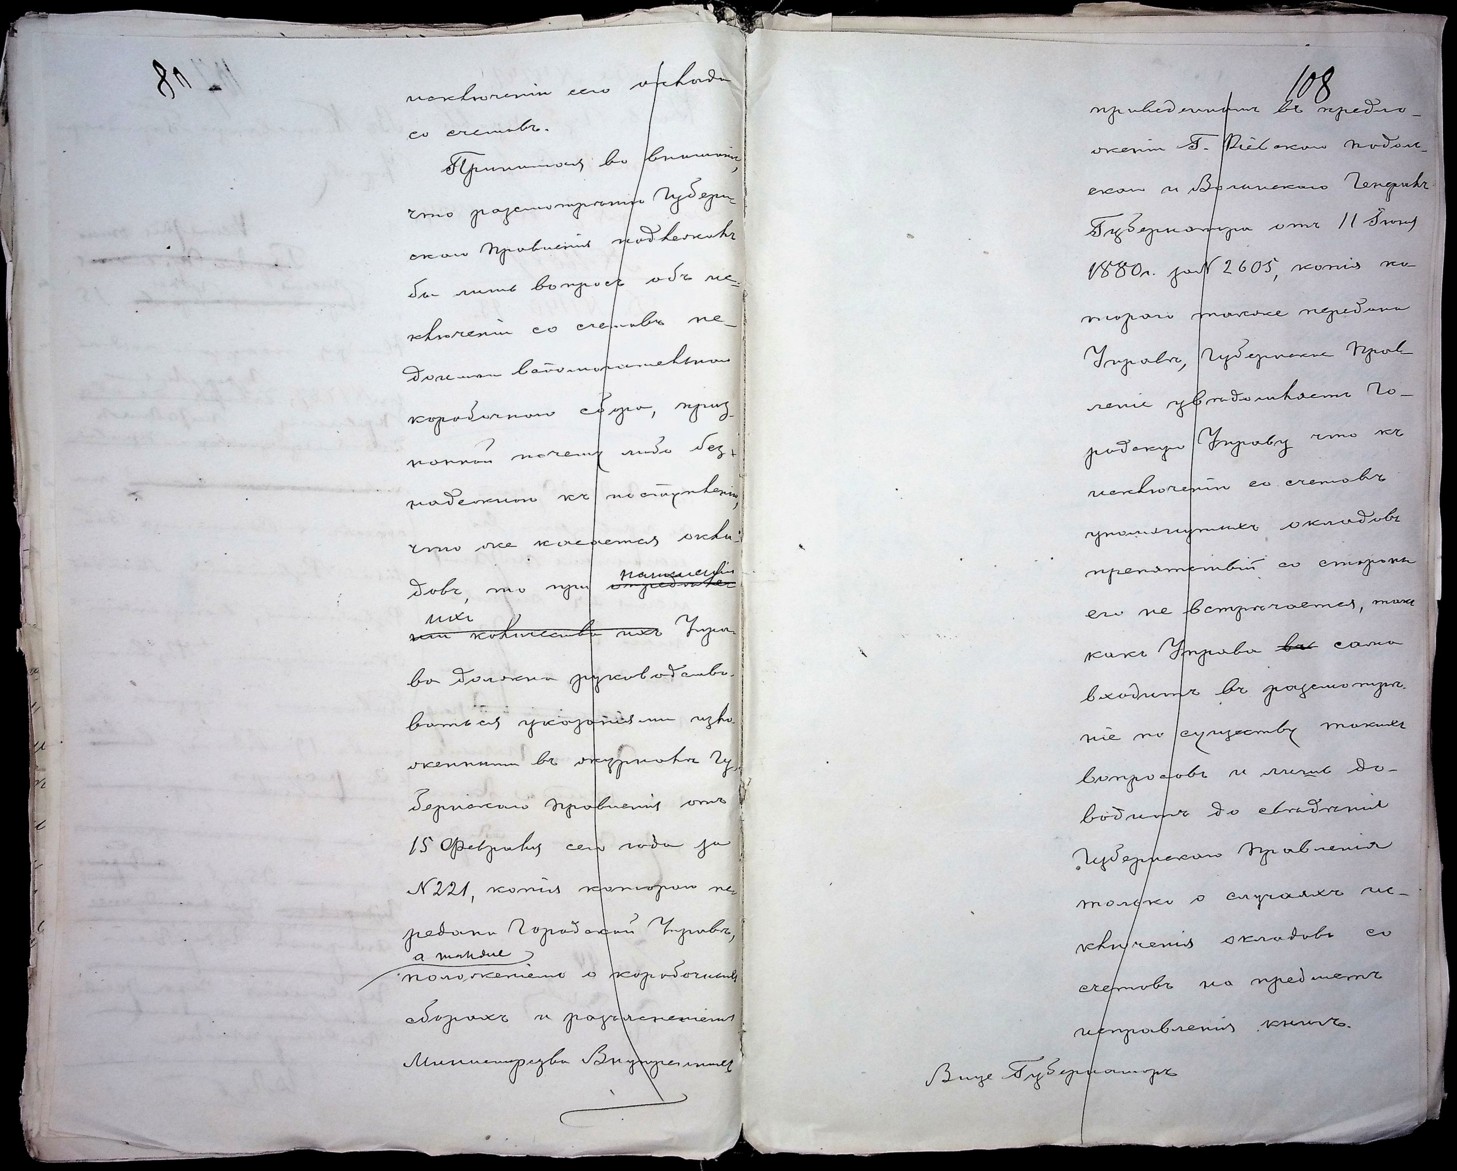 80
исключенiи сего оклада
со счетовъ.
Принимая во вниманiе,
что разсмотрѣнiю Губерн-
скаго Правленiя подлежалъ
бы лишь вопросъ объ ис-
ключенiи со счетовъ не-
доимки вспомогательнаго
коробочнаго сбора, приз-
нанной почему либо без-
надежною къ поступленiю,
что же касается окла-
довъ, то при назначенiи
ихъ
нiи количества ихъ Упра-
ва должна руководство-
ваться указанiями изло-
женными въ журналѣ Гу-
бернскаго Правленiя отъ
15 Февраля сего года за
N 221, копiя котораго пе-
редана Городской Управѣ,
а также
положенiемъ о коробочныхъ
сборахъ и разъясненiемъ
Министерства Внутреннихъ
108
приведеннымъ въ предло-
женiи Г. Кiевскаго Подоль-
скаго и Волынскаго Генералъ
Губернатора отъ 11 Iюня
1880 г. за N 2605, копiя ко-
тораго также передана
Управѣ, Губернское Прав-
ленiе увѣдомляетъ Го-
родскую Управу что къ
исключенiю со счетовъ
упомянутыхъ окладовъ
препятствiй со стороны
его не встрѣчается, такъ
какъ Управа сама
входитъ въ разсмотрѣ-
нiе по существу такихъ
вопросовъ и лишь до-
водитъ до свѣдѣнiя
Губернскаго Правленiя
только о случаяхъ ис-
ключенiя окладовъ со
счетовъ на предметъ
исправленiя книгъ.
Вице Губернаторъ